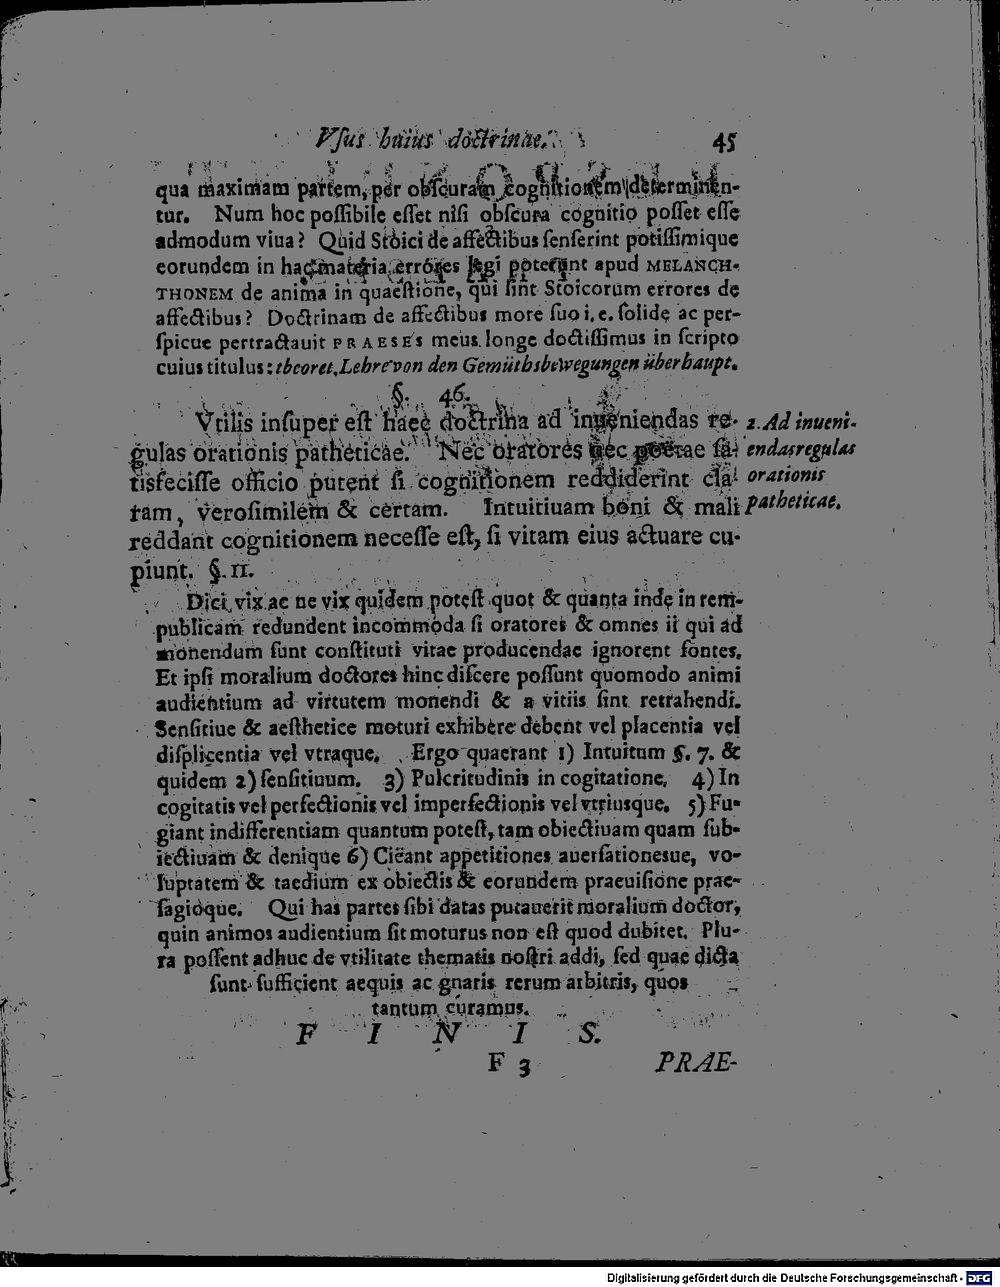 Vſus huius doctrinae. 45
qua maximam partem, per obſcuram cognitionem determinen-
tur. Num hoc poſſibile eſſet niſi obſcura cognitio poſſet eſſe
admodum viua? Quid Stoici de affectibus ſenſerint potiſſimique
eorundem in hac materia errores legi poterunt apud MELANCH-
THONEM de anima in quaeſtione, qui ſint Stoicorum errores de
affectibus? Doctrinam de affectibus more ſuo i. e. ſolide ac per-
ſpicue pertractauit PRAESES meus longe doctiſſimus in ſcripto
cuius titulus: theoret. Lehre von den Gemüthsbewegungen überhaupt.
§. 46.
Vtilis inſuper eſt haec doctrina ad inueniendas re-
gulas orationis patheticae. Nec oratores nec poetae ſa-
tisfeciſſe officio putent ſi cognitionem reddiderint cla-
ram, veroſimilem & certam. Intuitiuam boni & mali
reddant cognitionem neceſſe eſt, ſi vitam eius actuare cu-
piunt. §. 11.
2. Ad inueni-
endas regulas
orationis
patheticae.
Dici vix ac ne vix quidem poteſt quot & quanta inde in rem-
publicam redundent incommoda ſi oratores & omnes ii qui ad
monendum ſunt conſtituti vitae producendae ignorent fontes.
Et ipſi moralium doctores hinc diſcere poſſunt quomodo animi
audientium ad virtutem monendi & a vitiis ſint retrahendi.
Senſitiue & aeſthetice moturi exhibere debent vel placentia vel
diſplicentia vel vtraque. Ergo quaerant 1) Intuitum §. 7. &
quidem 2) ſenſitiuum. 3) Pulcritudinis in cogitatione. 4) In
cogitatis vel perfectionis vel imperfectionis vel vtriusque. 5) Fu-
giant indifferentiam quantum poteſt, tam obiectiuam quam ſub-
iectiuam & denique 6) Cieant appetitiones auerſationesue, vo-
luptatem & taedium ex obiectis & eorundem praeuiſione prae-
ſagioque. Qui has partes ſibi datas putauerit moralium doctor,
quin animos audientium ſit moturus non eſt quod dubitet. Plu-
ra poſſent adhuc de vtilitate thematis noſtri addi, ſed quae dicta
ſunt ſufficient aequis ac gnaris rerum arbitris, quos
tantum curamus.
F I N I S.
F 3 PRAE-
Digitalisierung gefördert durch die Deutsche Forschungsgemeinschaft - DFG